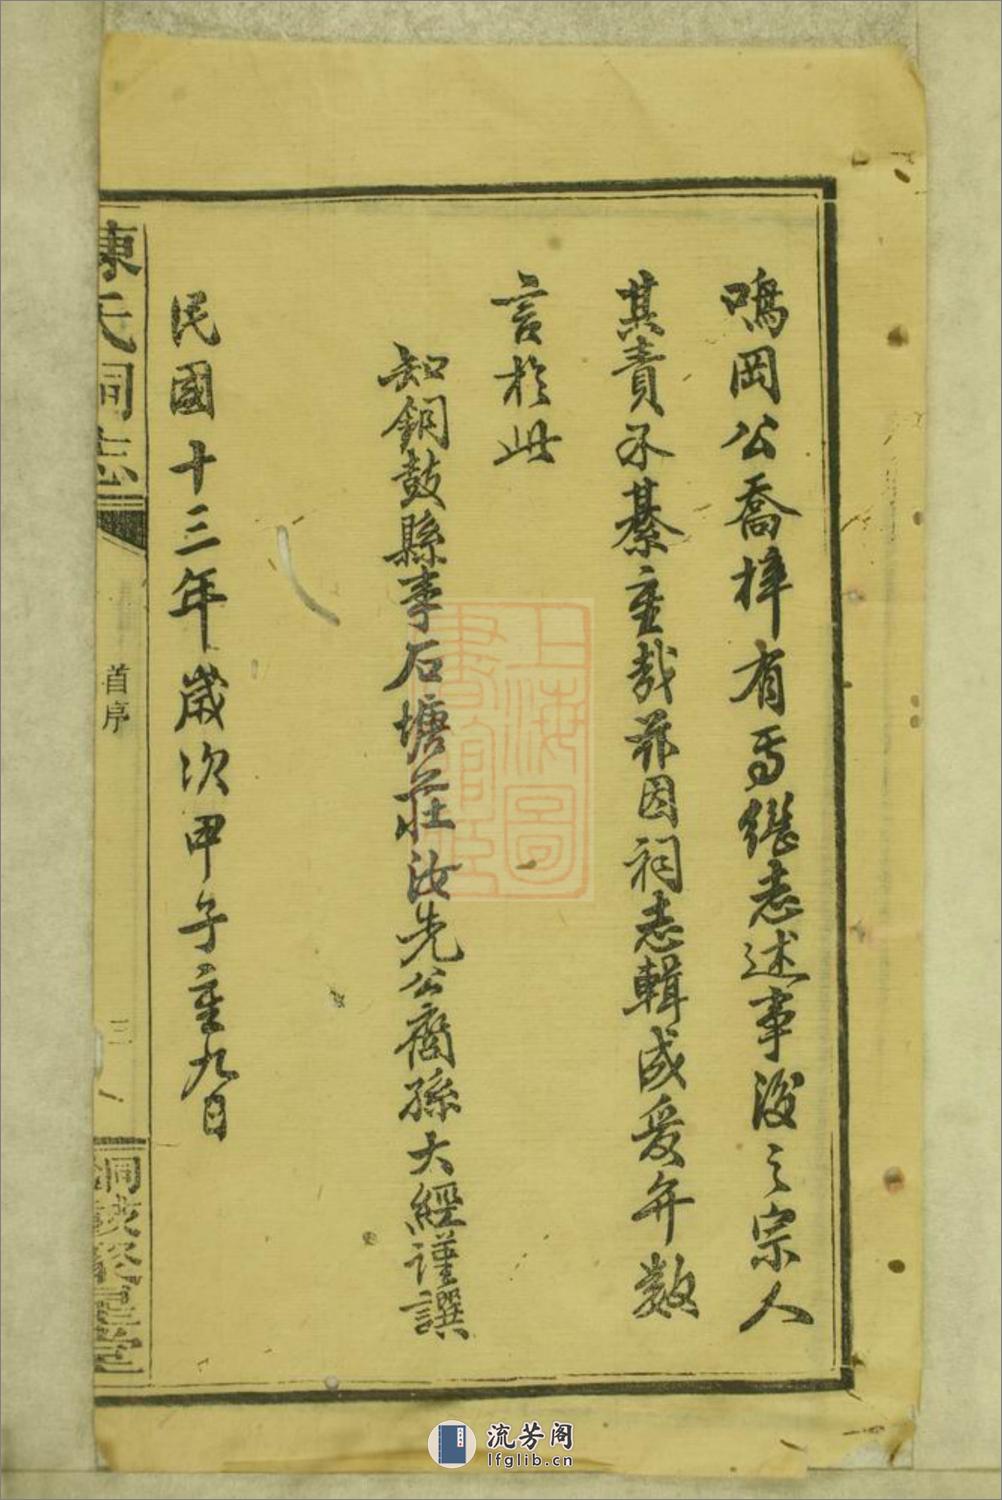 鳴岡公喬梓有焉繼志述事後之宗人
其責不綦重哉茲因祠志輯成爰弁數
言於此
知銅鼓縣事石塘莊汝先公裔孫大經謹譔
民國十三年歲次甲子重九日
陳氏祠志
首序
三
上海圖
書館
流芳阁
lfglib.cn